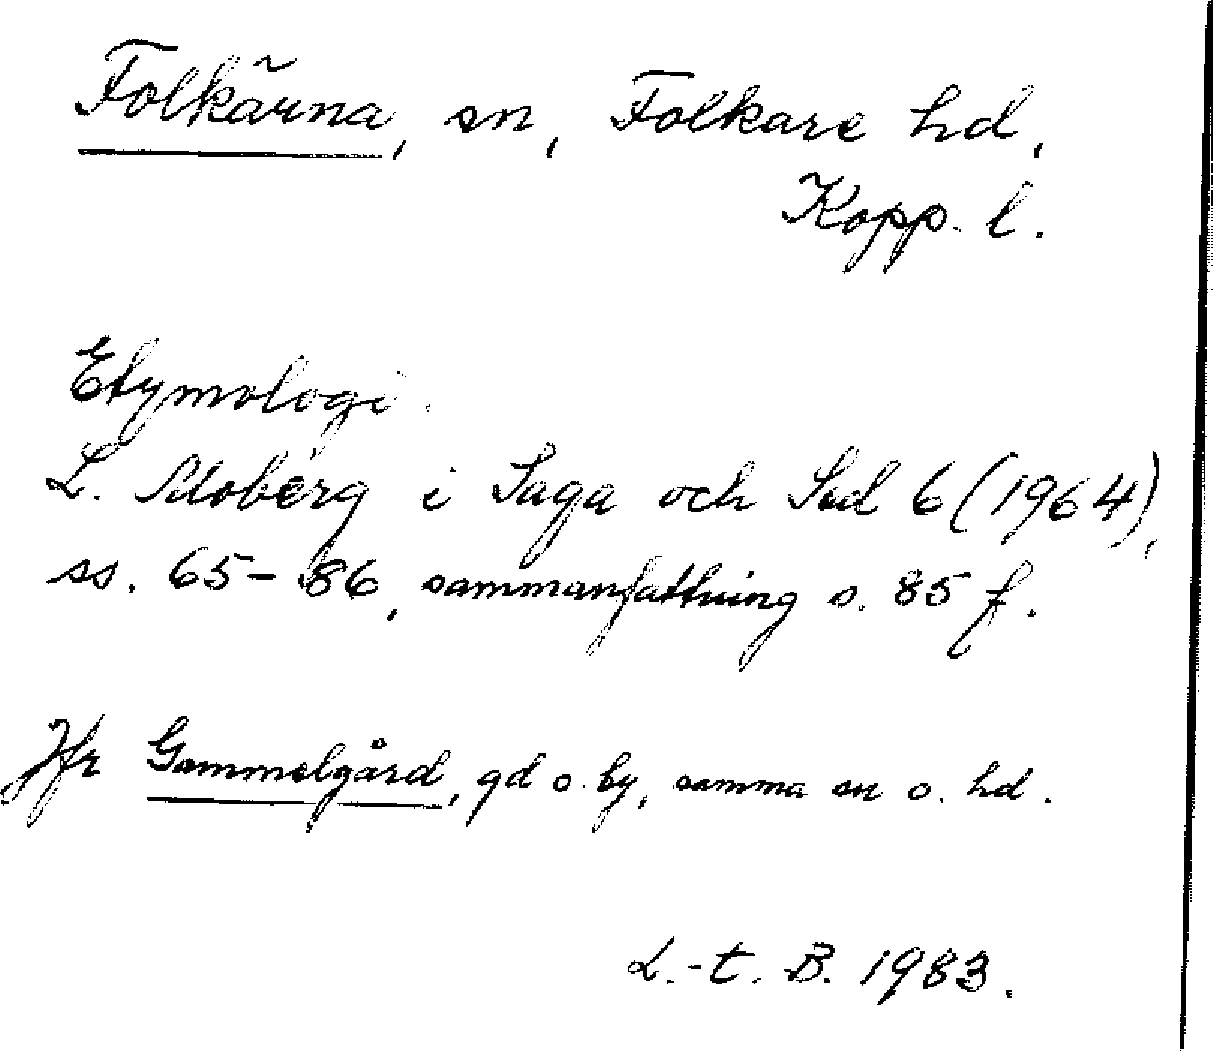 Folkärna, sn, Folkare hd,
Kopp. l.
Etymologi.
L. Moberg i Saga och Sed 6 (1964),
ss. 65-86, sammanfattning s. 85 f.
Jfr Gammelgård, gd o. by, samma sn o. hd.
L.-t. B. 1983.